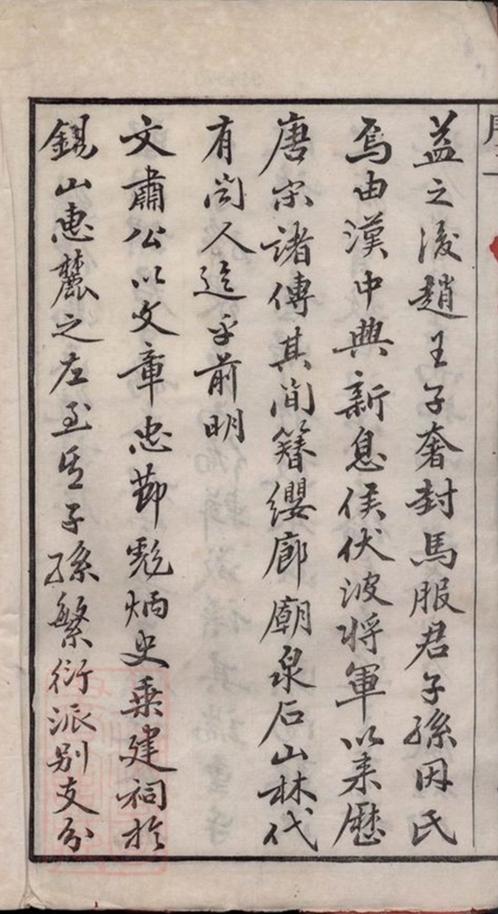 益之後趙王子奢封馬服君子孫因氏
焉由漢中興新息侯伏波將軍以来歷
唐宋諸傳其間簪纓廊廟泉石山林代
有闻人迨乎前明
文肅公以文章忠節彪炳史乗建祠於
錫山惠麓之左至今子孫繁衍派别支分